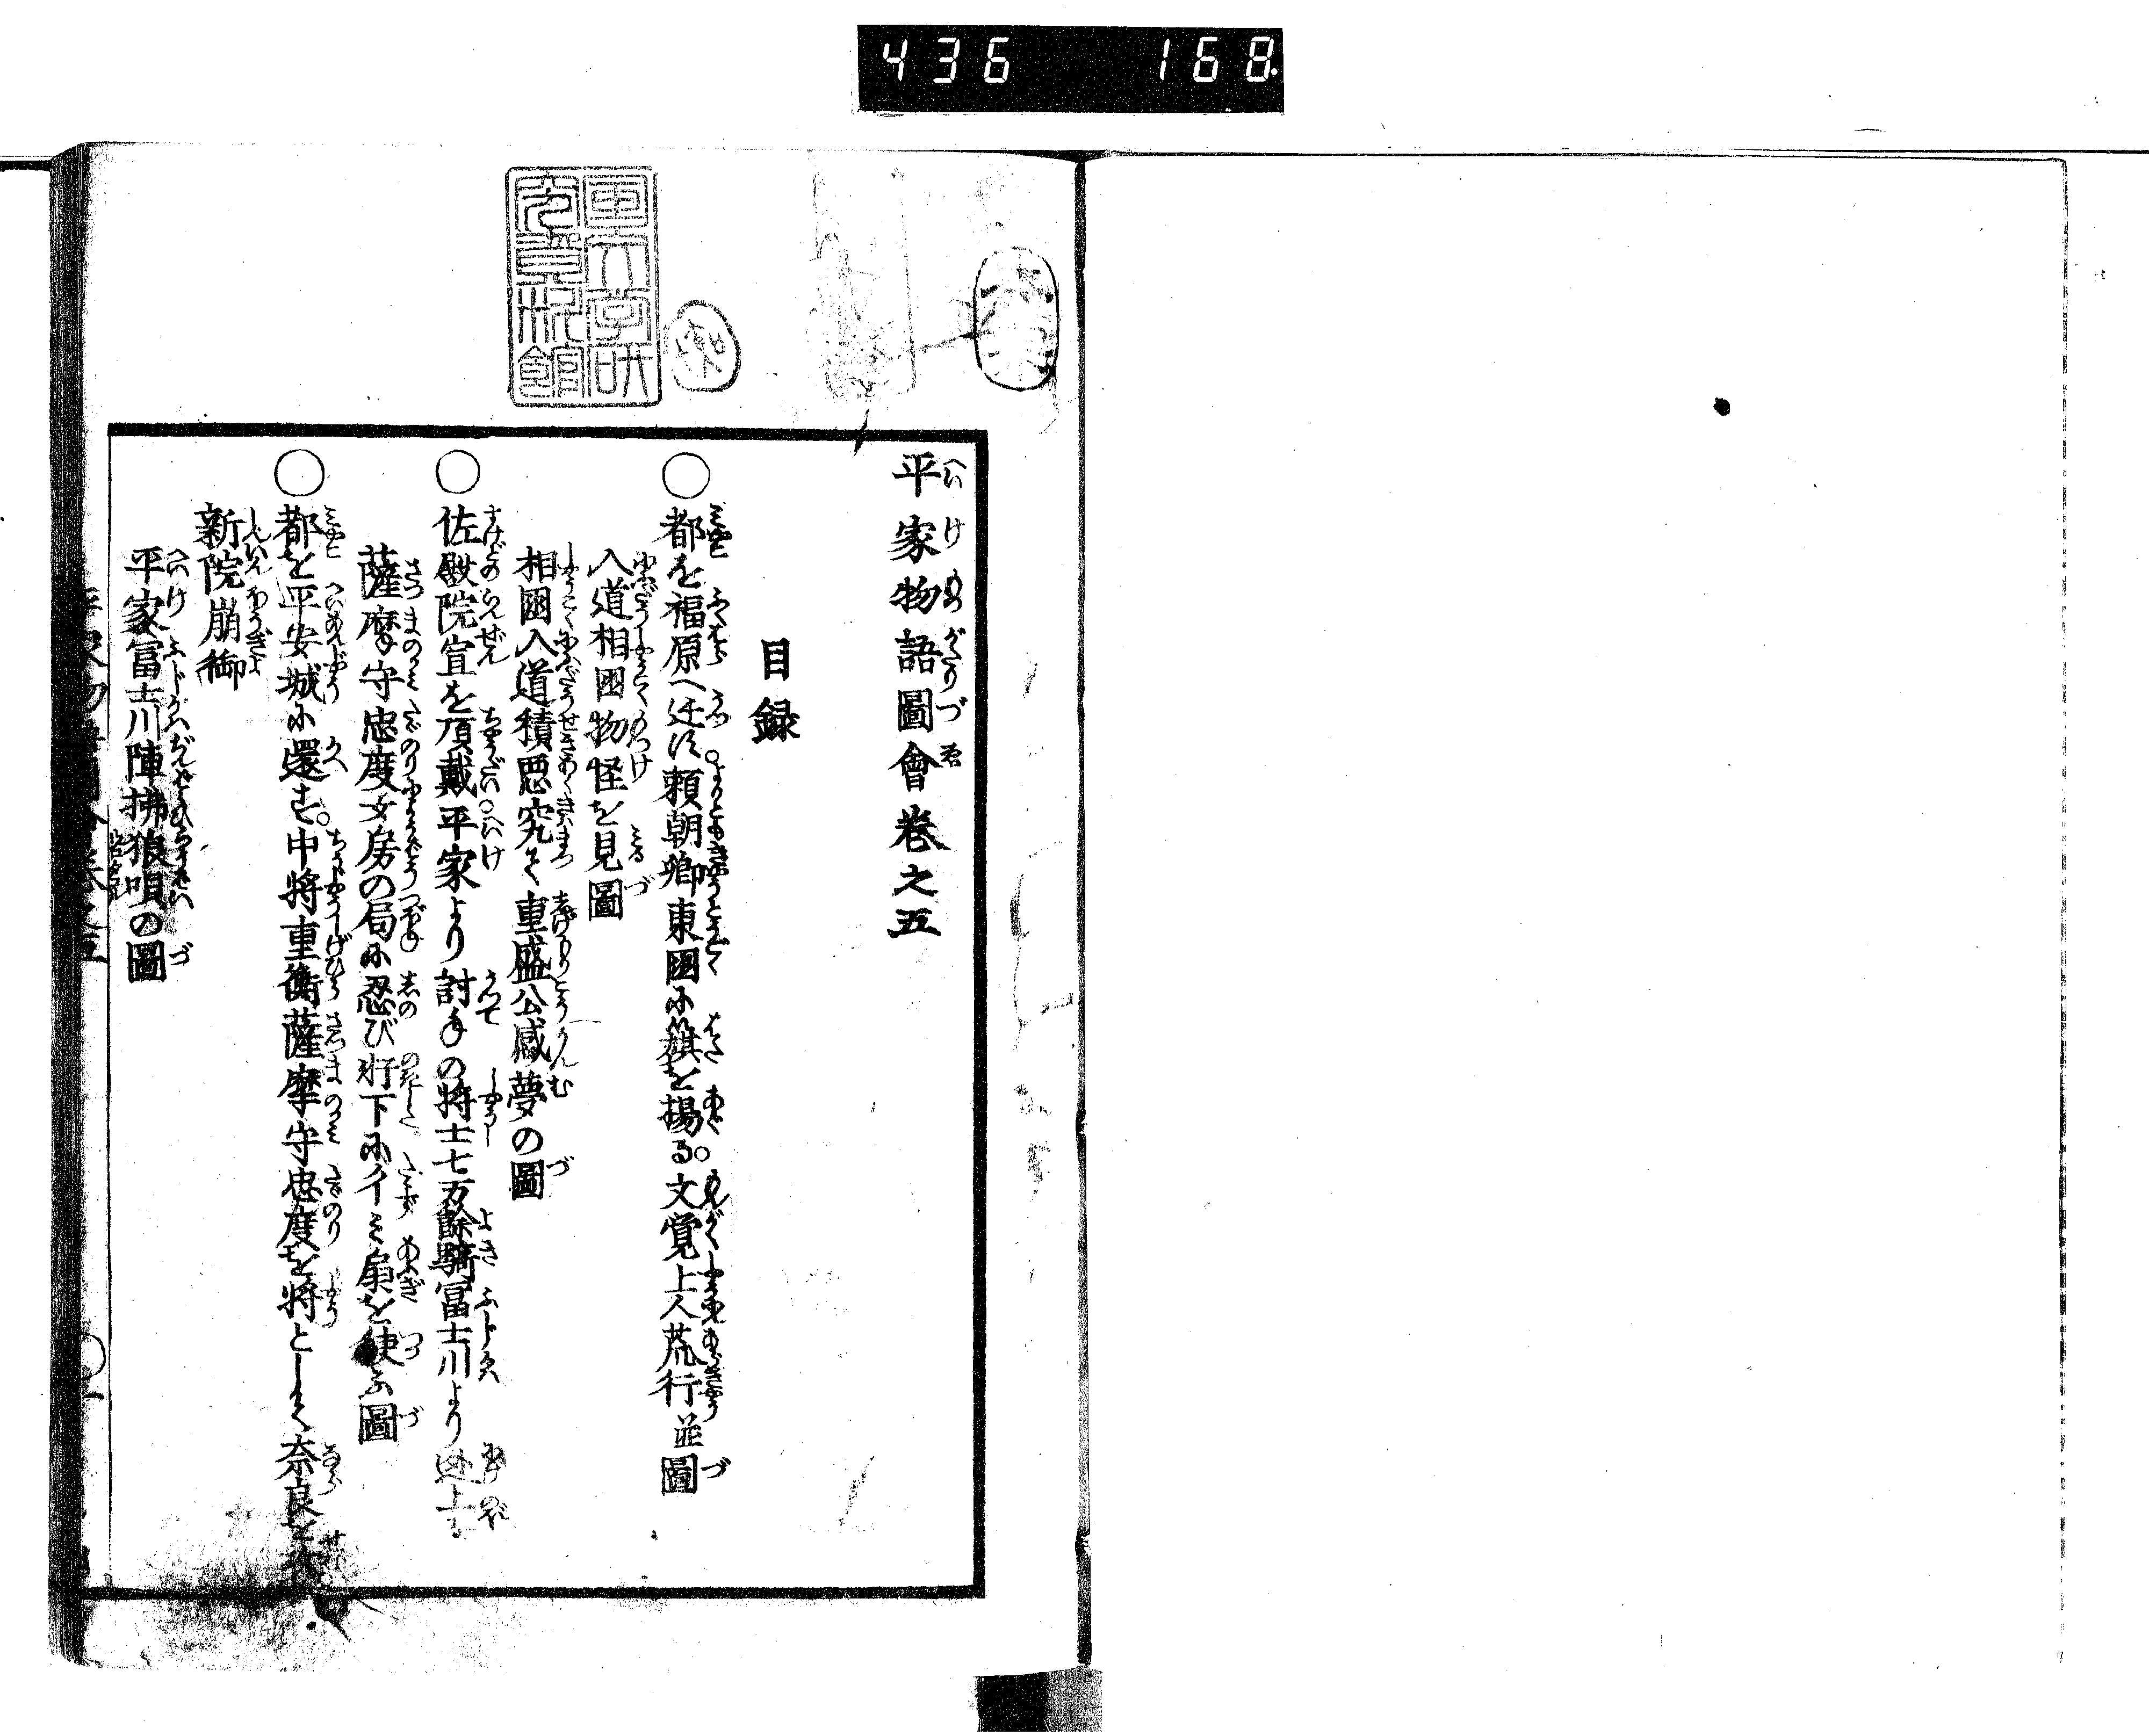 436 168
平家物語圖會卷之五
目録
○都を福原へ迁す。頼朝卿東国に旗を揚る。文覚上人荒行並圖
入道相国物怪を見圖
相國入道積悪究て重盛公感夢の圖
○佐殿院宣を頂戴。平家より討手の将士七万餘騎冨士川より迯上る
薩摩守忠度女房の局に忍び行下に彳ミ扇を使ふ圖
○都を平安城に還す。中将重衡薩摩守忠度を将として奈良を
新院崩御
平家冨士川陣拂狼唄の圖